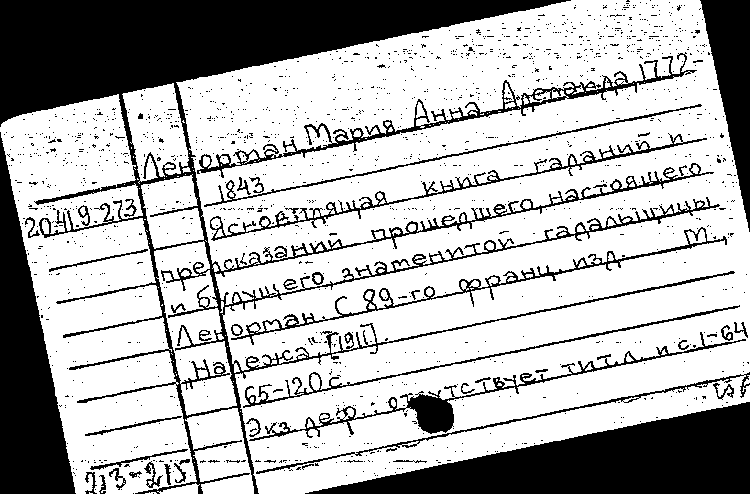 Ленорман, Мария Анна Аделаида, 1772-
1843.
20.41.9.273
Ясновидящая книга гаданий и
предсказаний прошедшего, настоящего
и будущего, знаменитой гадальщицы
Ленорман. С 89-го франц. изд. М.,
„Надежа", [1911].
65-120 с.
Экз. деф.: отсутствует тит. л. и с. 1-64
213-215